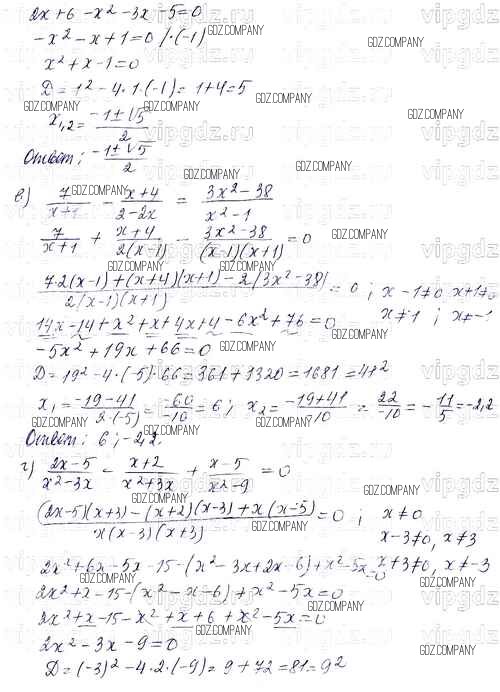 2x+6-x²-3x-5=0
-x²-x+1=0 /·(-1)
x²+x-1=0
D=1²-4·1·(-1)=1+4=5
x₁,₂=(-1±√5)/2
Ответ: (-1±√5)/2
в) 7/(x+1) - (x+4)/(2-2x) = (3x²-38)/(x²-1)
7/(x+1) + (x+4)/(2(x-1)) - (3x²-38)/((x-1)(x+1)) = 0
(7·2(x-1)+(x+4)(x+1)-2(3x²-38))/(2(x-1)(x+1)) = 0 ; x-1≠0 x+1≠0
x≠1 ; x≠-1
14x-14+x²+x+4x+4-6x²+76=0
-5x²+19x+66=0
D=19²-4·(-5)·66=361+1320=1681=41²
x₁=(-19-41)/(2·(-5))=(-60)/(-10)=6; x₂=(-19+41)/(-10)=22/(-10)=-11/5=-2,2
Ответ: 6; -2,2.
г) (2x-5)/(x²-3x) - (x+2)/(x²+3x) + (x-5)/(x²-9) = 0
((2x-5)(x+3)-(x+2)(x-3)+x(x-5))/(x(x-3)(x+3)) = 0 ; x≠0
x-3≠0, x≠3
2x²+6x-5x-15-(x²-3x+2x-6)+x²-5x=0 x+3≠0, x≠-3
2x²+x-15-(x²-x-6)+x²-5x=0
2x²+x-15-x²+x+6+x²-5x=0
2x²-3x-9=0
D=(-3)²-4·2·(-9)=9+72=81=9²
GDZ.COMPANY
vipgdz.ru